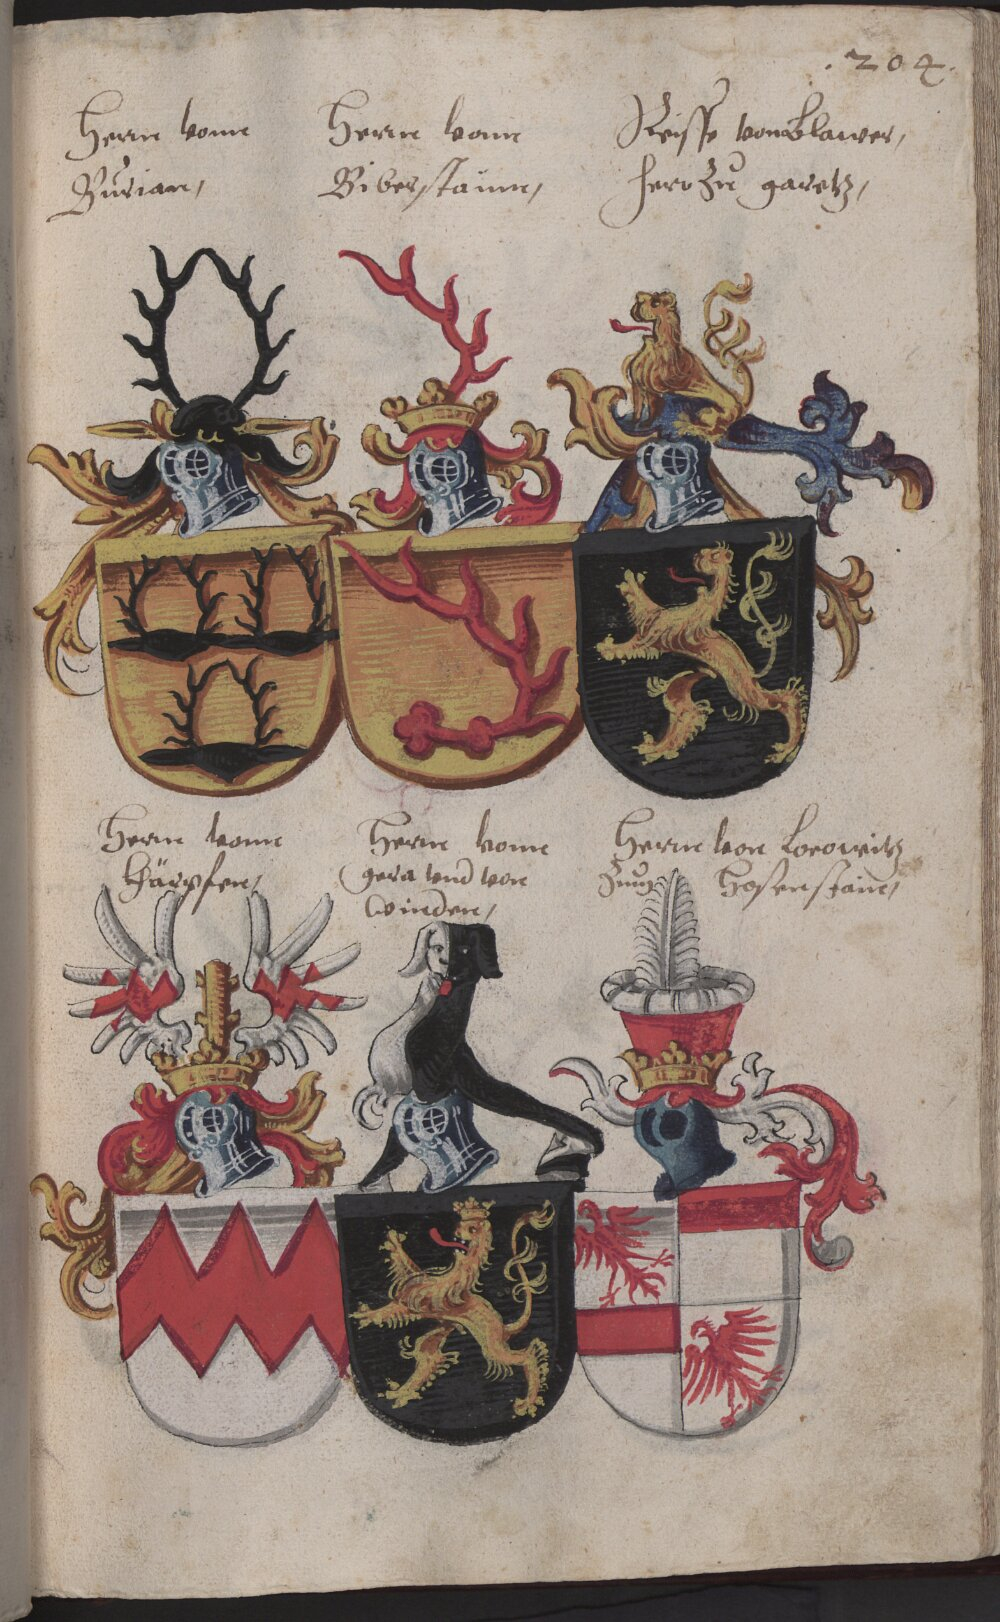 .204.
Herrn vonn
Burian,
Herrn vonn
Biberstainn,
Reisse von Blawen,
herr zu garetz,
Herrn vonn
Härpfen,
Herrn vonn
gera vnd von
Winden,
Herrn von Lorowitz
Zum Hassenstain,